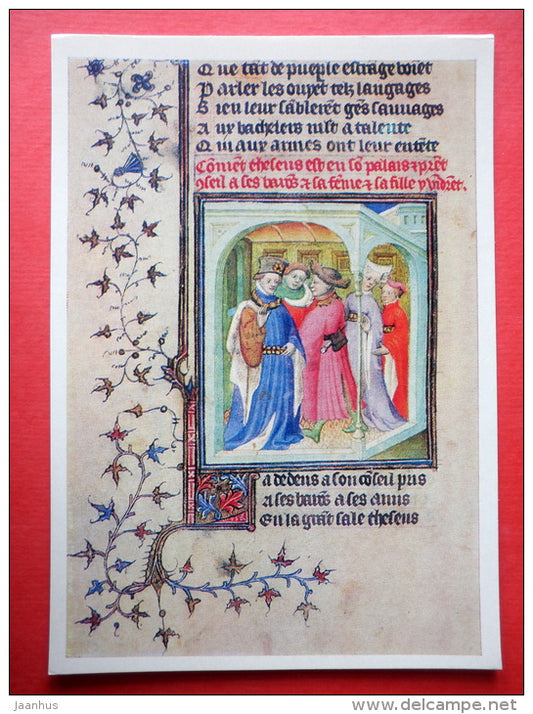 Que tāt de pueple estrāge voiet
Parler les ouyet telz langages
Bien leur sābleret gēs sauuages
Aux bachelers mlt a talente
Qui aux armes ont leur entēte
Cōmēt theseus est en sō palais & prēt
ɔseil a ses barōs & sa fēme & sa fille y vindrēt.
La dedens a son cōseil pris
A ses barōs a ses amis
En la grāt sale theseus
jaanhus
www.delcampe.net